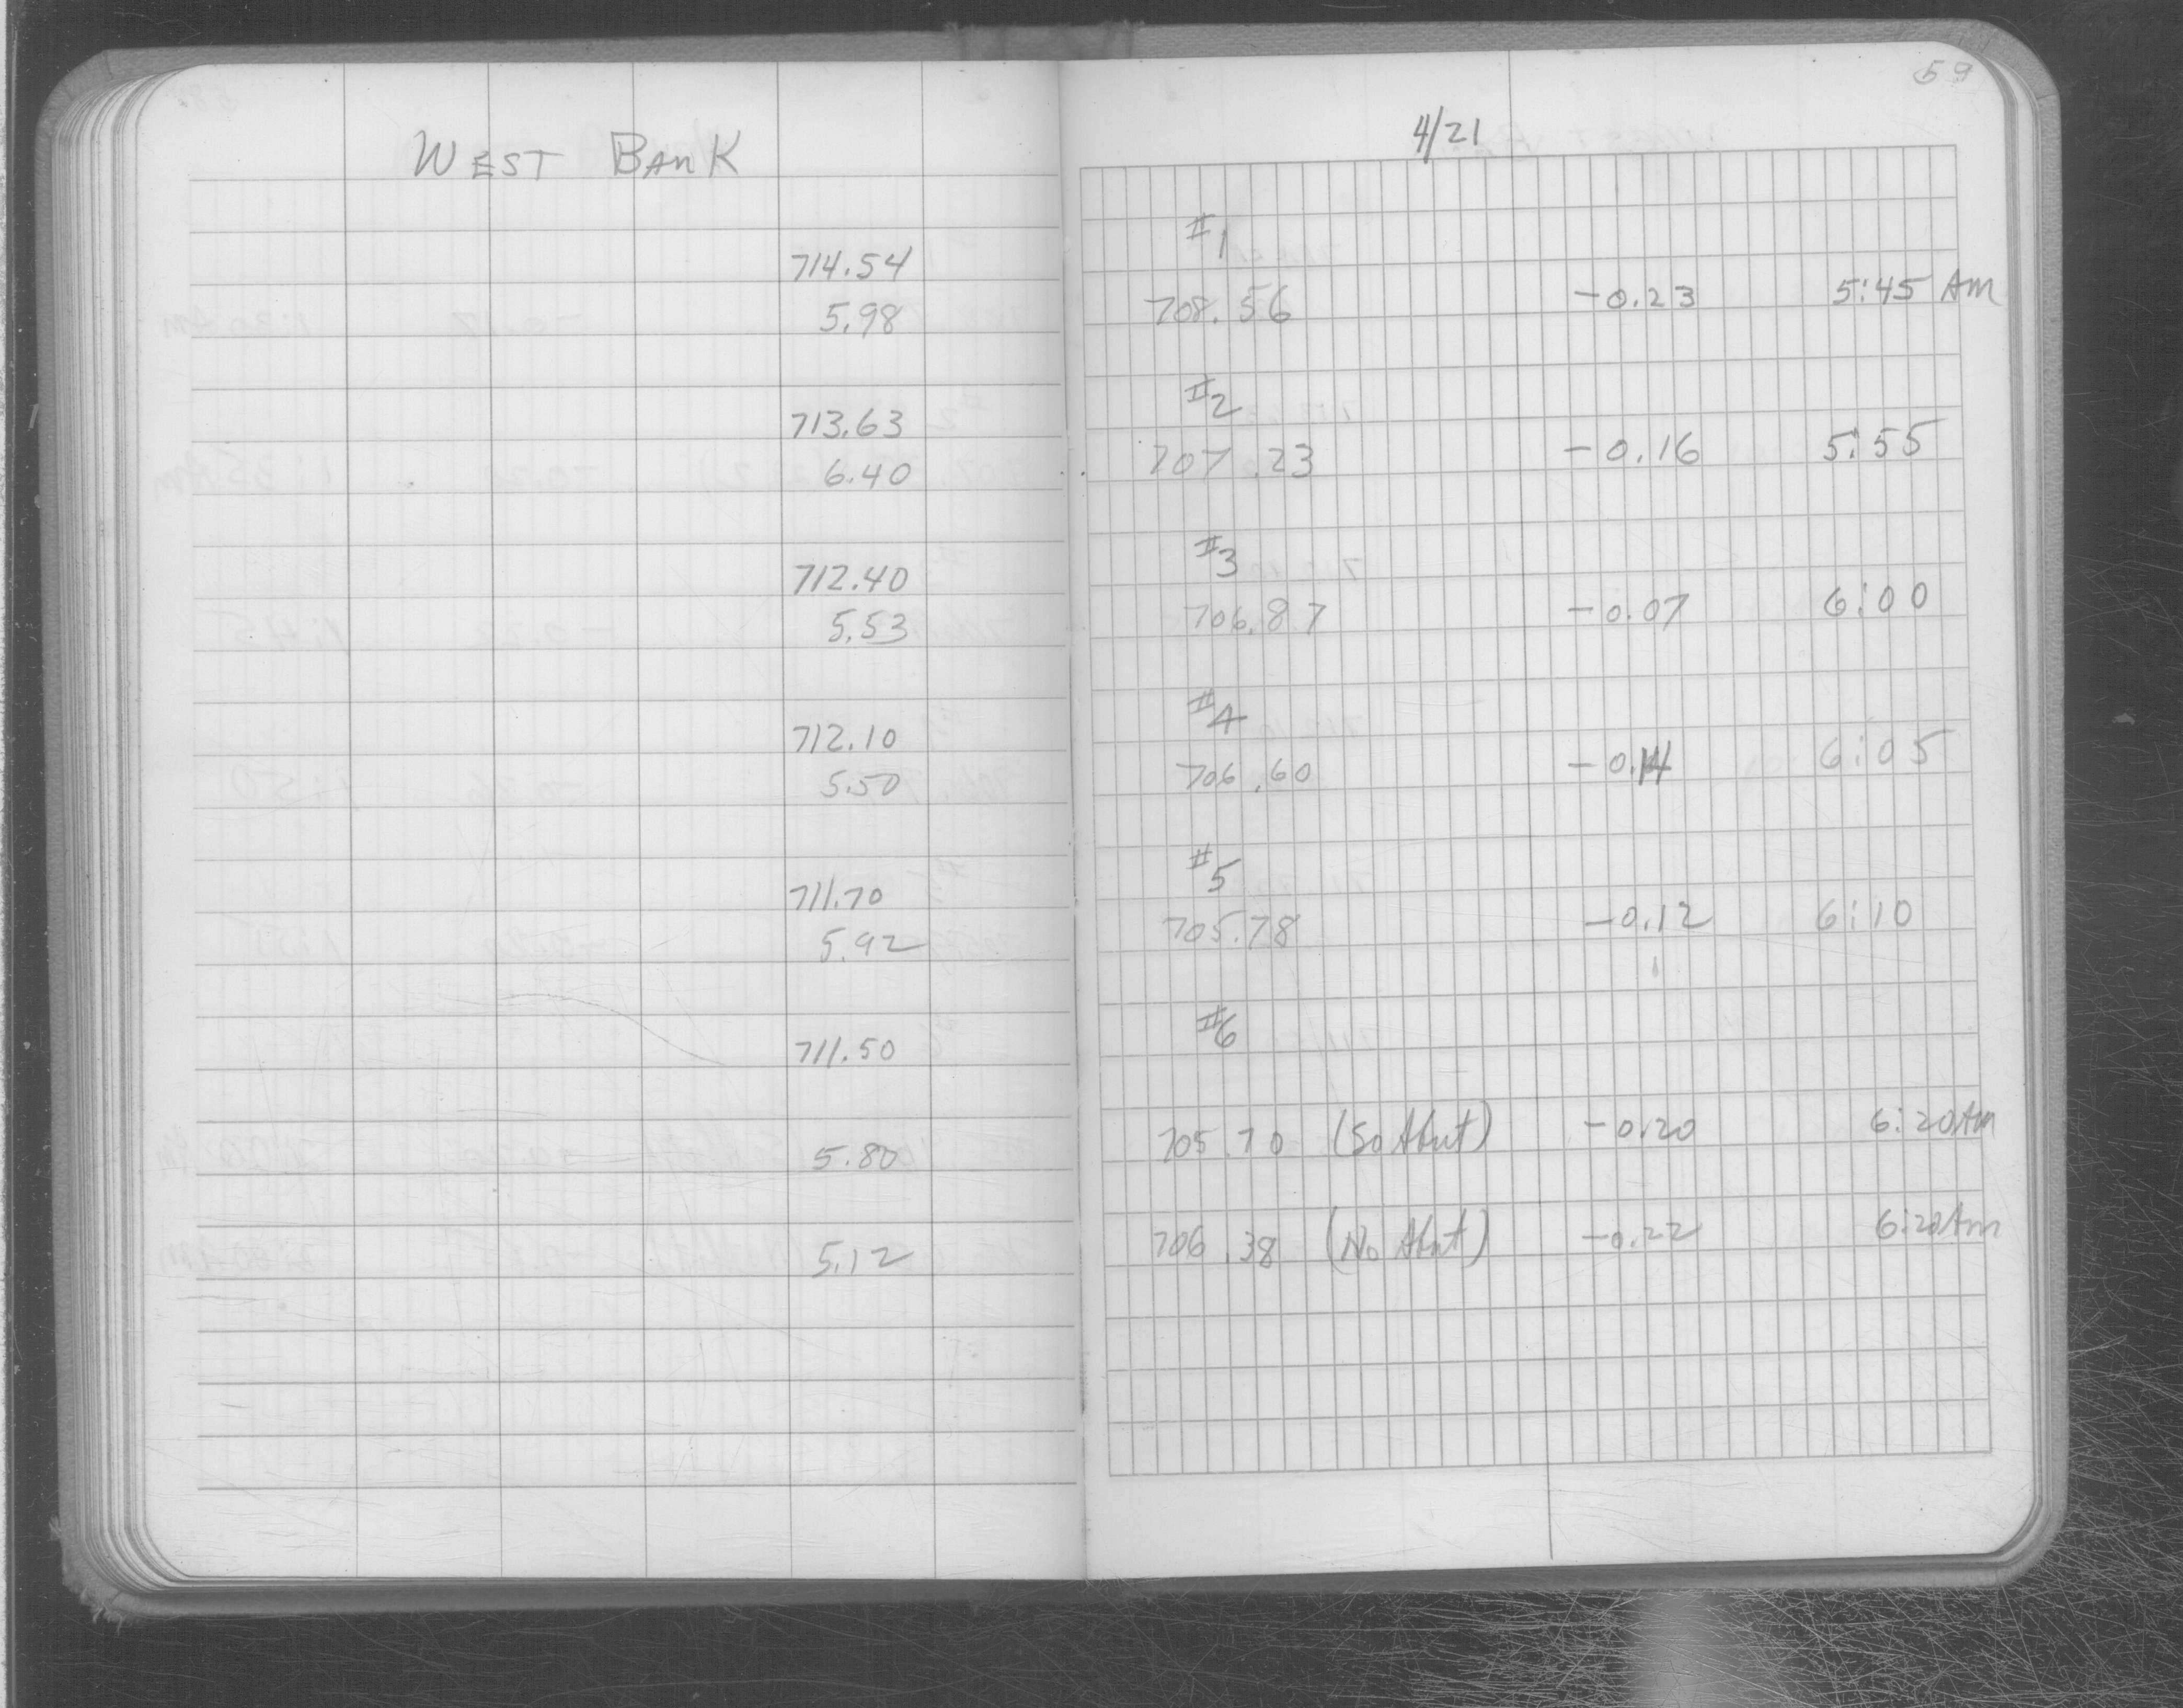 59
WEST BANK
4/21
#1
714.54
5.98 708.56 -0.23 5:45 AM
#2
713.63
6.40 707.23 -0.16 5:55
#3
712.40
5.53 706.87 -0.07 6:00
#4
712.10
5.50 706.60 -0.14 6:05
#5
711.70
5.92 705.78 -0.12 6:10
#6
711.50
5.80 705.70 (So Abut) -0.20 6:20 Am
5.12 706.38 (No Abut) -0.22 6:20 Am